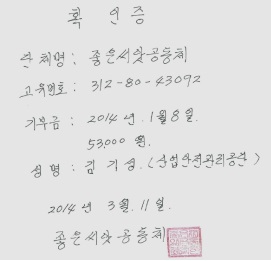 확 인 증
단 체명 : 좋은씨앗공동체
고유번호 : 312-80-43092
기부금 : 2014년 1월 8일.
53,000 원.
성 명 : 김 기 성. (산업안전관리공단)
2014년 3월 11일.
좋은씨앗공동체